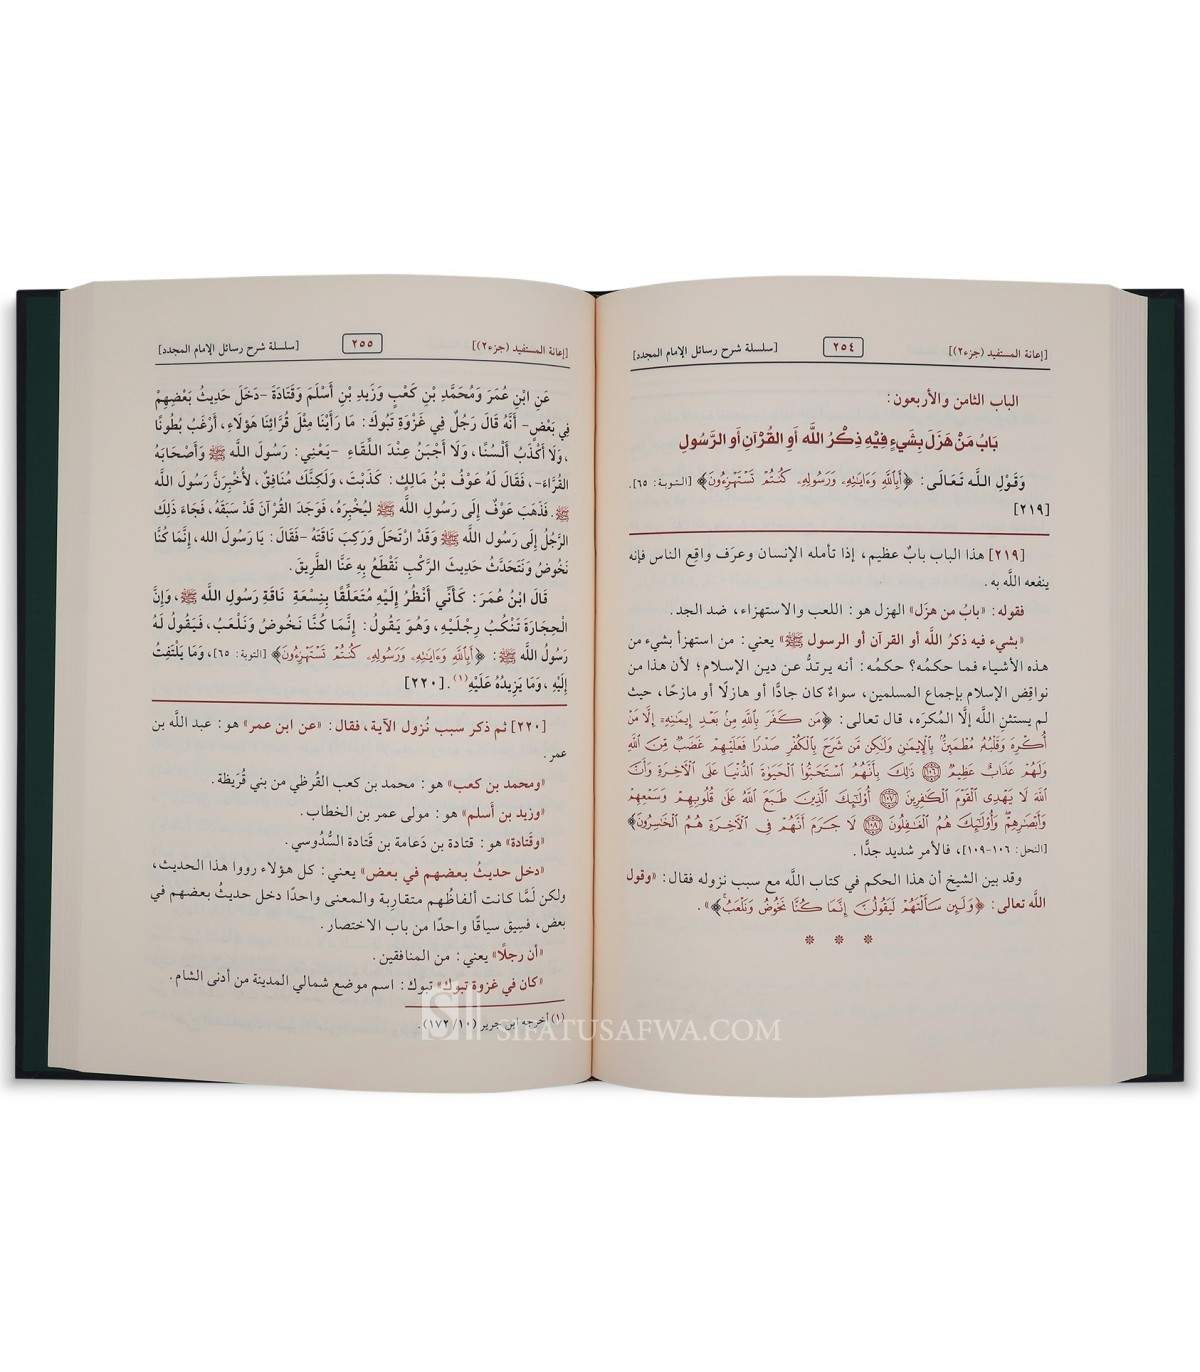 [إعانة المستفيد (جزء٢)] ٢٥٤ [سلسلة شرح رسائل الإمام المجدد]
الباب الثامن والأربعون:
بَابُ مَنْ هَزَلَ بِشَيءٍ فِيْهِ ذِكْرُ اللَّه أَوِ القُرْآنِ أَو الرَّسُولِ
وَقَوْلِ اللَّه تَعَالَى: ﴿أَبِٱللَّهِ وَءَايَٰتِهِۦ وَرَسُولِهِۦ كُنتُمْ تَسْتَهْزِءُونَ﴾ [التوبة: ٦٥].
[٢١٩]
[٢١٩] هذا الباب بابٌ عظيم، إذا تأمله الإنسان وعرَف واقِع الناس فإنه
ينفعه اللَّه به.
فقوله: «بابُ من هزَل» الهزل هو: اللعب والاستهزاء، ضد الجد.
«بشيء فيه ذكرُ اللَّه أو القرآن أو الرسول ﷺ» يعني: من استهزأ بشيء من
هذه الأشياء فما حكمُه؟ حكمُه: أنه يرتدُّ عن دين الإسلام؛ لأن هذا من
نواقِض الإسلام بإجماع المسلمين، سواءٌ كان جادًّا أو هازلًا أو مازحًا، حيث
لم يستثنِ اللَّه إلَّا المُكرَه، قال تعالى: ﴿مَن كَفَرَ بِٱللَّهِ مِنۢ بَعْدِ إِيمَٰنِهِۦٓ إِلَّا مَنْ
أُكْرِهَ وَقَلْبُهُۥ مُطْمَئِنٌّۢ بِٱلْإِيمَٰنِ وَلَٰكِن مَّن شَرَحَ بِٱلْكُفْرِ صَدْرًا فَعَلَيْهِمْ غَضَبٌ مِّنَ ٱللَّهِ
وَلَهُمْ عَذَابٌ عَظِيمٌ ١٠٦ ذَٰلِكَ بِأَنَّهُمُ ٱسْتَحَبُّوا۟ ٱلْحَيَوٰةَ ٱلدُّنْيَا عَلَى ٱلْءَاخِرَةِ وَأَنَّ
ٱللَّهَ لَا يَهْدِى ٱلْقَوْمَ ٱلْكَٰفِرِينَ ١٠٧ أُو۟لَٰٓئِكَ ٱلَّذِينَ طَبَعَ ٱللَّهُ عَلَىٰ قُلُوبِهِمْ وَسَمْعِهِمْ
وَأَبْصَٰرِهِمْ وَأُو۟لَٰٓئِكَ هُمُ ٱلْغَٰفِلُونَ ١٠٨ لَا جَرَمَ أَنَّهُمْ فِى ٱلْءَاخِرَةِ هُمُ ٱلْخَٰسِرُونَ﴾
[النحل: ١٠٦-١٠٩]، فالأمر شديد جدًّا.
وقد بين الشيخ أن هذا الحكم في كتاب اللَّه مع سبب نزوله فقال: «وقول
اللَّه تعالى: ﴿وَلَئِن سَأَلْتَهُمْ لَيَقُولُنَّ إِنَّمَا كُنَّا نَخُوضُ وَنَلْعَبُ﴾».
* * *
[إعانة المستفيد (جزء٢)] ٢٥٥ [سلسلة شرح رسائل الإمام المجدد]
عَنِ ابْنِ عُمَرَ وَمُحَمَّدِ بْنِ كَعْبٍ وَزَيدِ بْنِ أَسْلَمَ وَقَتَادَةَ -دَخَلَ حَدِيثُ بَعْضِهِمْ
فِي بَعْضٍ- أَنَّهُ قَالَ رَجُلٌ فِي غَزْوَةِ تَبُوكَ: مَا رَأَيْنَا مِثْلَ قُرَّائِنَا هَؤلَاءِ، أَرْغَبُ بُطُونًا
،وَلَا أَكْذَبُ أَلْسُنًا، وَلَا أَجْبَنُ عِنْدَ اللِّقَاءِ -يَعْنِي: رَسُولَ اللَّه ﷺ وَأَصْحَابَهُ
القُرَّاءَ-، فَقَالَ لَهُ عَوْفُ بْنُ مَالِكٍ: كَذَبْتَ، وَلَكِنَّكَ مُنَافِقٌ، لأُخْبِرَنَّ رَسُولَ اللَّه
ﷺ. فَذَهَبَ عَوْفٌ إِلَى رَسُولِ اللَّه ﷺ لِيُخْبِرَهُ، فَوَجَدَ القُرْآنَ قَدْ سَبَقَهُ، فَجَاءَ ذَلِكَ
الرَّجُلُ إِلَى رَسُولِ اللَّه ﷺ وَقَدْ ارْتَحَلَ وَرَكِبَ نَاقَتَهُ -فَقَالَ: يَا رَسُولَ اللَّه، إِنَّمَا كُنَّا
نَخُوضُ وَنَتَحَدَّثُ حَدِيثَ الرَّكْبِ نَقْطَعُ بِهِ عَنَّا الطَّرِيقَ.
قَالَ ابْنُ عُمَرَ: كَأَنِّي أَنْظُرُ إِلَيْهِ مُتَعَلِّقًا بِنِسْعَةِ نَاقَةِ رَسُولِ اللَّه ﷺ، وَإِنَّ
الْحِجَارَةَ تَنْكُبُ رِجْلَيْهِ، وَهُوَ يَقُولُ: إِنَّمَا كُنَّا نَخُوضُ وَنَلْعَبُ، فَيَقُولُ لَهُ
رَسُولُ اللَّه ﷺ: ﴿أَبِٱللَّهِ وَءَايَٰتِهِۦ وَرَسُولِهِۦ كُنتُمْ تَسْتَهْزِءُونَ﴾ [التوبة: ٦٥]، وَمَا يَلْتَفِتُ
إِلَيْهِ، وَمَا يَزِيدُهُ عَلَيْهِ(١). [٢٢٠]
[٢٢٠] ثم ذكر سبب نُزول الآية، فقال: «عن ابن عمر» هو: عبد اللَّه بن
عمر.
«ومحمد بن كعب» هو: محمد بن كعب القُرظي من بني قُرَيظة.
«وزيد بن أسلم» هو: مولى عمر بن الخطاب.
«وقَتادة» هو: قتادة بن دَعامة بن قَتادة السُّدُوسي.
«دخل حديثُ بعضهم في بعض» يعني: كل هؤلاء رووا هذا الحديث،
ولكن لَمَّا كانت ألفاظُهم متقارِبة والمعنى واحدًا دخل حديثُ بعضهم في
بعض، فسِيق سياقًا واحدًا من باب الاختصار.
«أن رجلًا» يعني: من المنافقين.
«كان في غزوة تبوك» تبوك: اسم موضع شمالي المدينة من أدنى الشام.
(١) أخرجه ابن جرير (١٠/ ١٧٢).
SIFATUSAFWA.COM